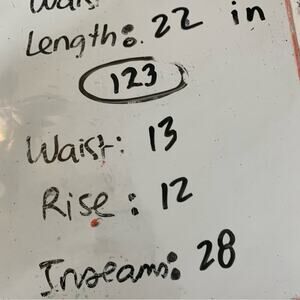 Length: 22 in
123
Waist: 13
Rise: 12
Inseam: 28